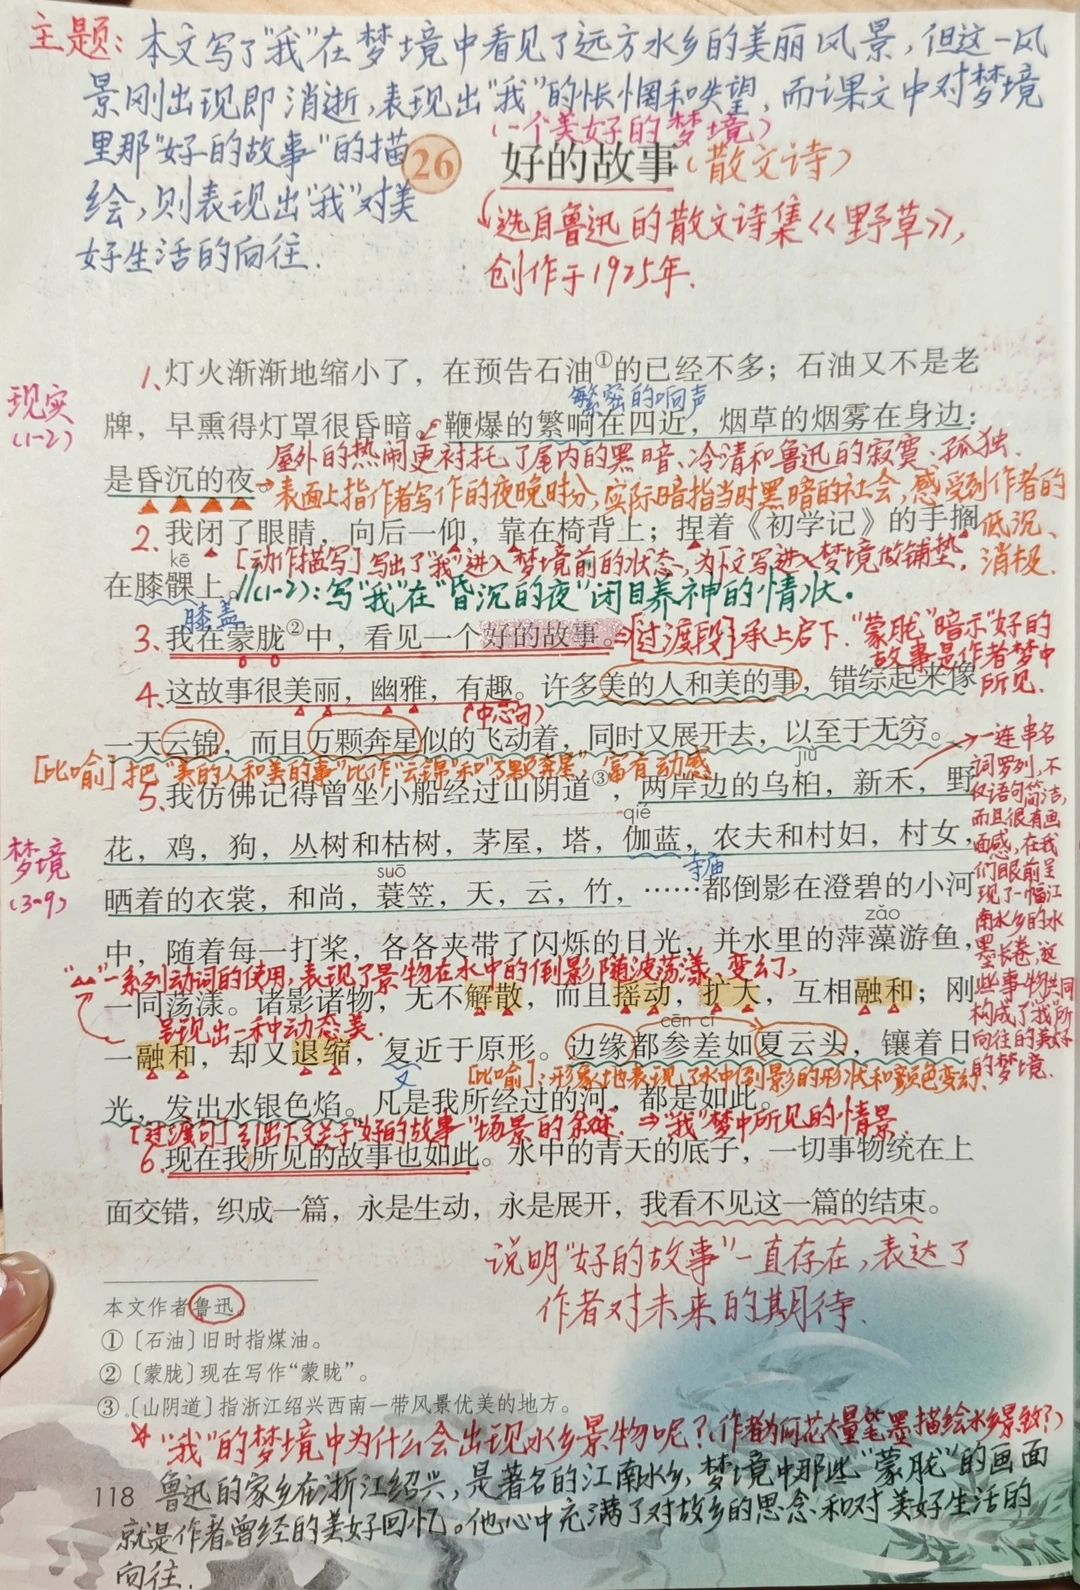 主题：本文写了“我”在梦境中看见了远方水乡的美丽风景，但这一风
景刚出现即消逝，表现出“我”的怅惘和失望，而课文中对梦境
里那“好的故事”的描
绘，则表现出“我”对美
好生活的向往.
(一个美好的梦境)
26 好的故事(散文诗)
选自鲁迅的散文诗集《野草》，
创作于1925年.
1、灯火渐渐地缩小了，在预告石油①的已经不多；石油又不是老
现实
(1-2)
繁密的响声
牌，早熏得灯罩很昏暗。鞭爆的繁响在四近，烟草的烟雾在身边：
屋外的热闹更衬托了屋内的黑暗、冷清和鲁迅的寂寞、孤独.
是昏沉的夜。
表面上指作者写作的夜晚时分，实际暗指当时黑暗的社会，感受到作者的
低沉、
消极.
2. 我闭了眼睛，向后一仰，靠在椅背上；捏着《初学记》的手搁
[动作描写]写出了“我”进入梦境前的状态，为下文写进入梦境做铺垫，
kē
在膝髁上。//(1-2)：写“我”在“昏沉的夜”闭目养神的情状。
膝盖
3. 我在蒙胧②中，看见一个好的故事。
⇒[过渡段]承上启下.“蒙胧”暗示“好的
故事”是作者梦中
所见.
4. 这故事很美丽，幽雅，有趣。许多美的人和美的事，错综起来像
(中心句)
一天云锦，而且万颗奔星似的飞动着，同时又展开去，以至于无穷。
[比喻]把“美的人和美的事”比作“云锦”和“万颗奔星”富有动感
jiù
5. 我仿佛记得曾坐小船经过山阴道③，两岸边的乌桕，新禾，野
qié
花，鸡，狗，丛树和枯树，茅屋，塔，伽蓝，农夫和村妇，村女，
寺庙
梦境
(3-9)
suō
晒着的衣裳，和尚，蓑笠，天，云，竹，……都倒影在澄碧的小河
zǎo
中，随着每一打桨，各各夹带了闪烁的日光，并水里的萍藻游鱼，
一系列动词的使用，表现了景物在水中的倒影随波荡漾、变幻，
一同荡漾。诸影诸物，无不解散，而且摇动，扩大，互相融和；刚
呈现出一种动态美.
cēn cī
一融和，却又退缩，复近于原形。边缘都参差如夏云头，镶着日
又
[比喻]：形象地表现了水中倒影的形状和颜色变幻.
光，发出水银色焰。凡是我所经过的河，都是如此。
[过渡句]引出下文关于“好的故事”场景的
⇒“我”梦中所见的情景
6. 现在我所见的故事也如此。水中的青天的底子，一切事物统在上
面交错，织成一篇，永是生动，永是展开，我看不见这一篇的结束。
说明“好的故事”一直存在，表达了
作者对未来的期待.
一连串名
词罗列，不
仅语句简洁，
而且很有画
面感，在我
们眼前呈
现了一幅江
南水乡的水
墨长卷，这
些事物共同
构成了“我”所
向往的美好
的梦境.
本文作者鲁迅。
①〔石油〕旧时指煤油。
②〔蒙胧〕现在写作“蒙眬”。
③〔山阴道〕指浙江绍兴西南一带风景优美的地方。
“我”的梦境中为什么会出现水乡景物呢？(作者为何花大量笔墨描绘水乡景致？)
鲁迅的家乡在浙江绍兴，是著名的江南水乡，梦境中那些“蒙胧”的画面
118
就是作者曾经的美好回忆。他心中充满了对故乡的思念和对美好生活的
向往.